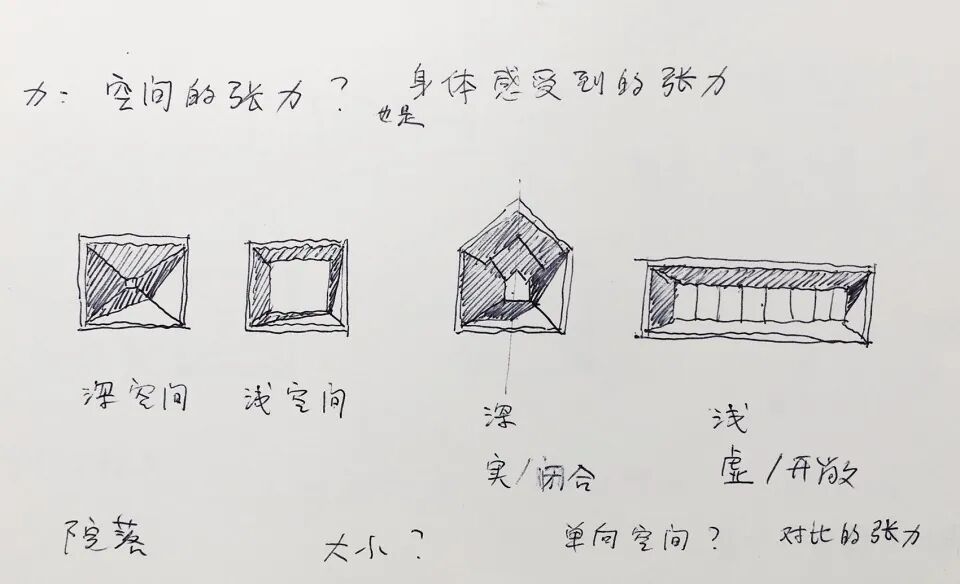 力：空间的张力？ 身体感受到的张力
也是
深空间 浅空间 深 浅
实/闭合 虚/开敞
院落 大小？ 单向空间？ 对比的张力